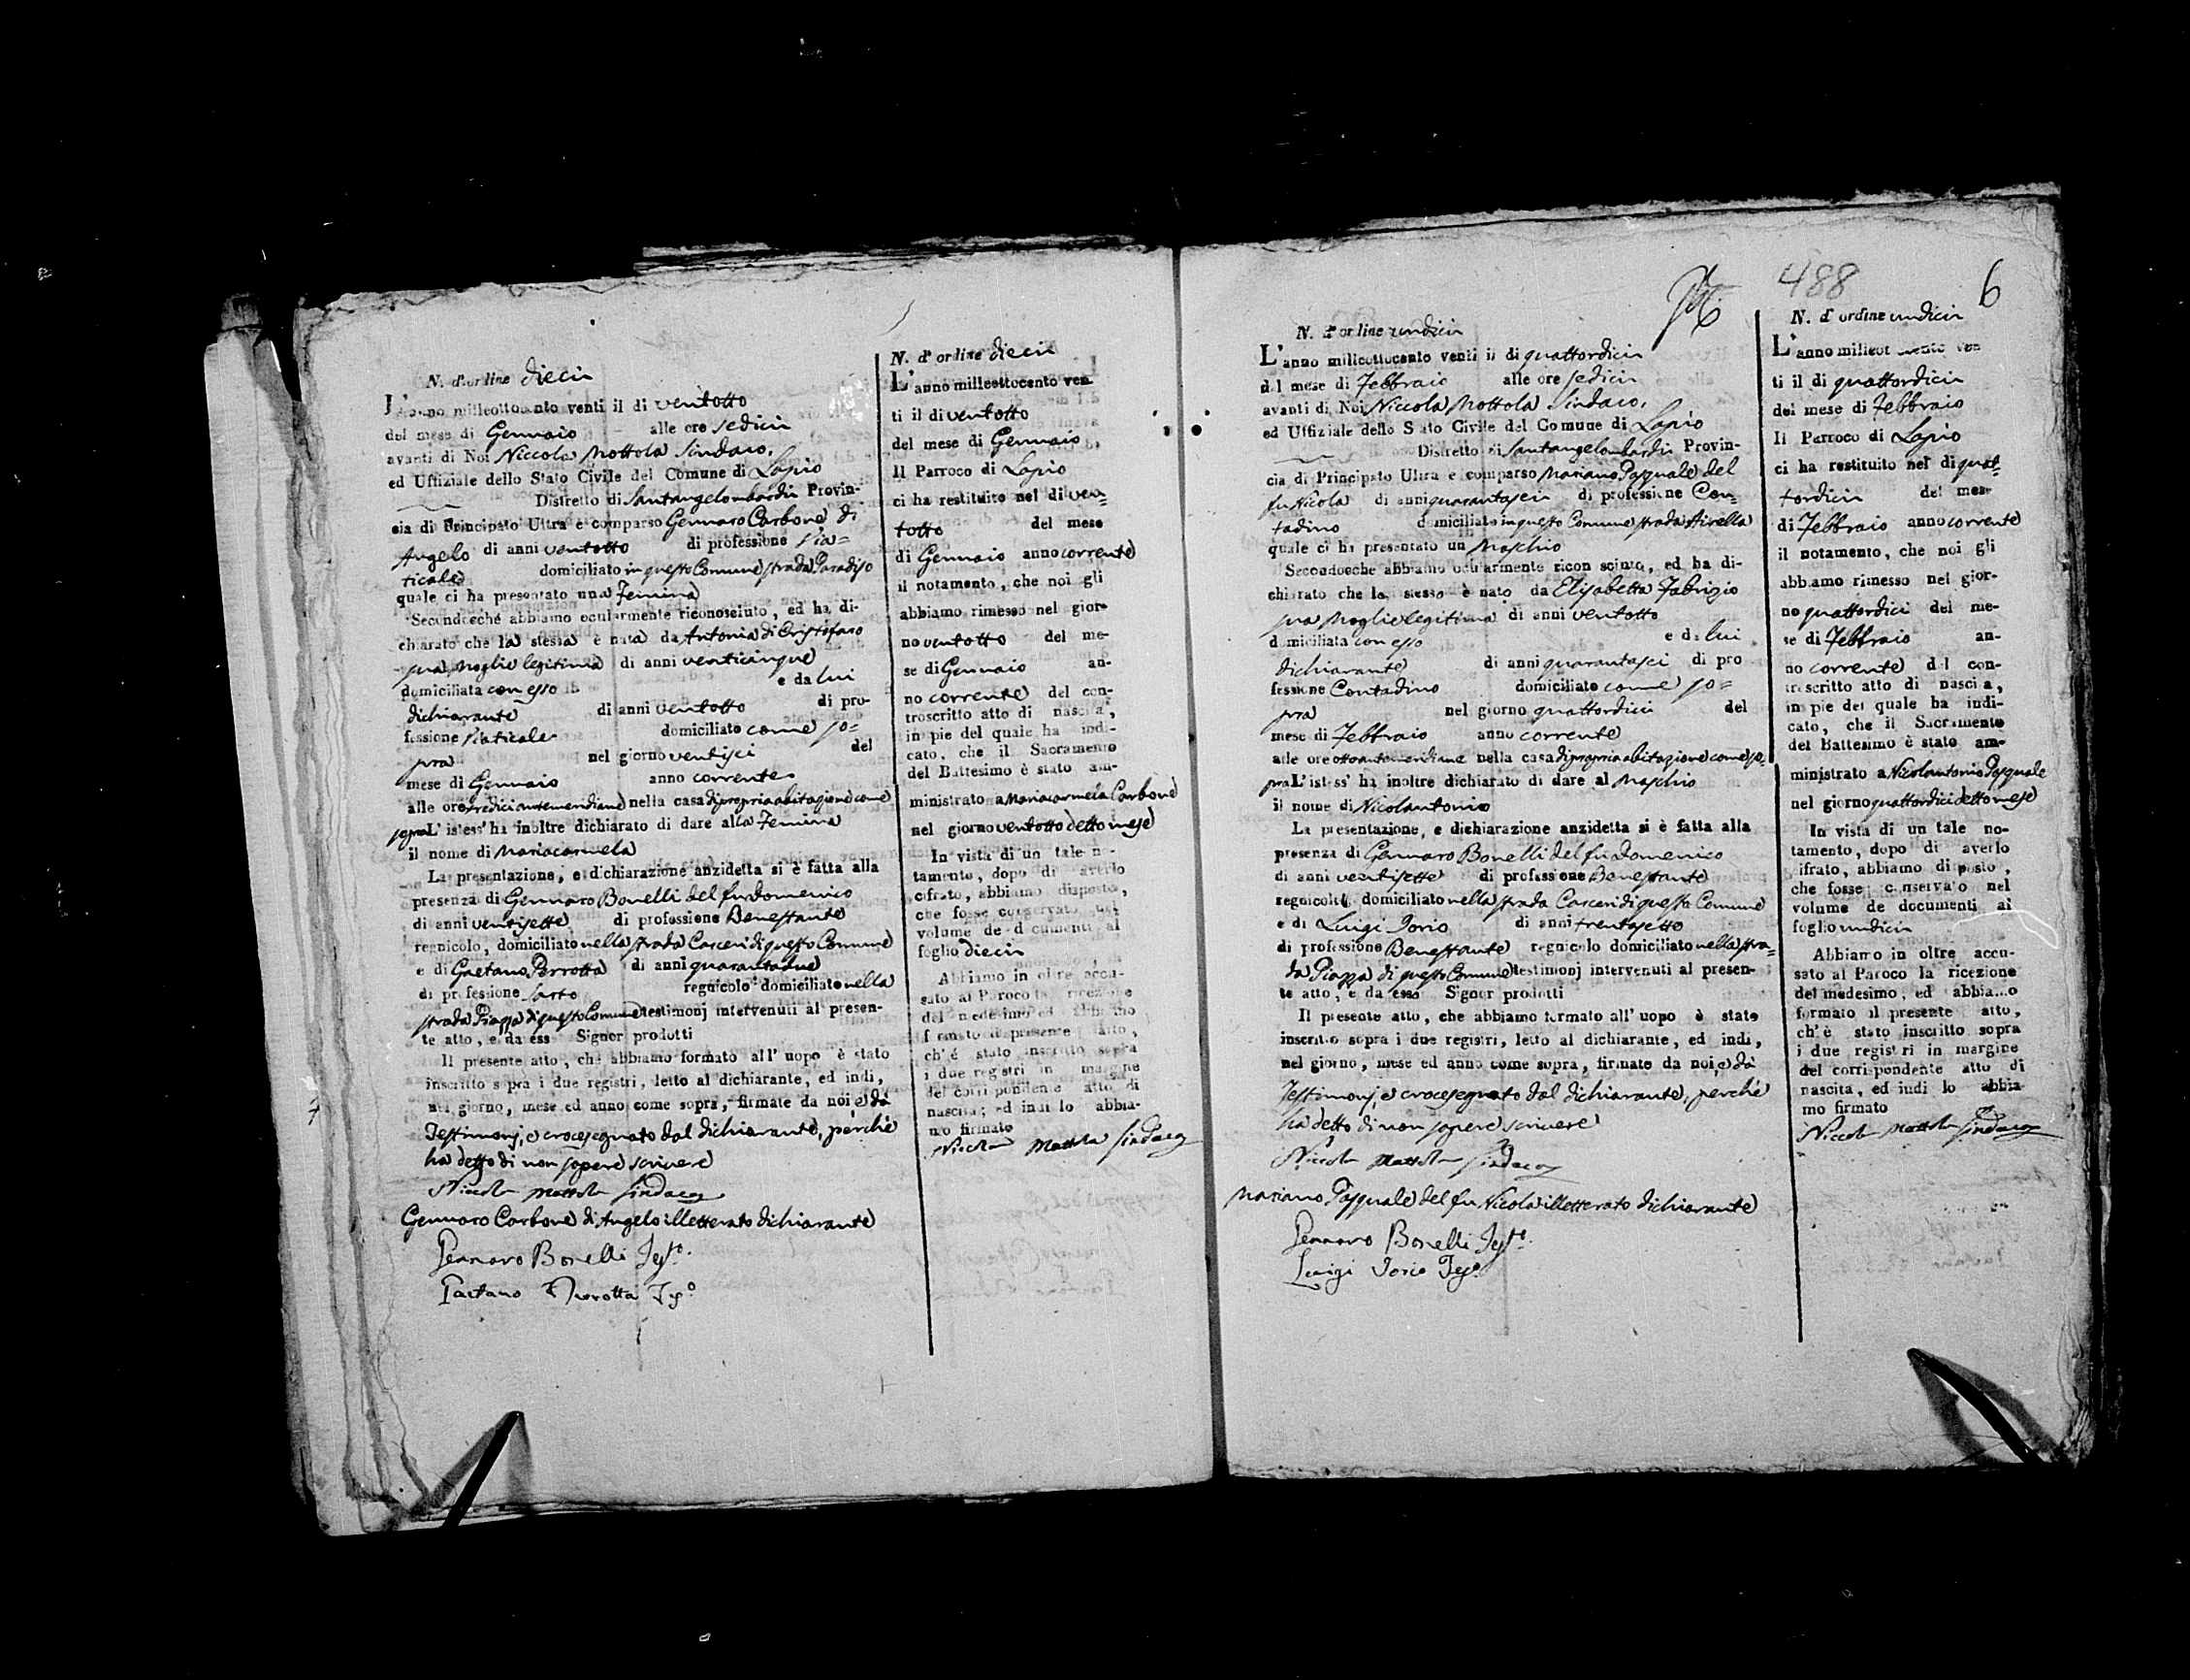 N. d'ordine dieci
L'anno milleottocento venti il di ventotto
del mese di Gennaio alle ore sedici
avanti di Noi Niccola Mottola Sindaco,
ed Uffiziale dello Stato Civile del Comune di Lapio
Distretto di Santangelombardi Provin-
cia di Principato Ultra è comparso Gennaro Carbone di
Angelo di anni ventotto di professione Via=
ticale domiciliato in questo Comune strada Paradiso
quale ci ha presentato una Femina
Secondocché abbiamo ocularmente riconosciuto, ed ha di-
chiarato che la stessa è nata da Antonia di Cristofaro
sua moglie legitima di anni venticinque
domiciliata con esso e da lui
dichiarante di anni ventotto di pro-
fessione Viaticale domiciliato come so=
pra nel giorno ventisei del
mese di Gennaio anno corrente
alle ore tredici antemeridiane nella casa di propria abitazione come
sopra L'istess' ha inoltre dichiarato di dare alla Femina
il nome di Mariacarmela
La presentazione, e dichiarazione anzidetta si è fatta alla
presenza di Gennaro Bonelli del fu Domenico
di anni ventisette di professione Benestante
regnicolo, domiciliato nella strada Carceri di questo Comune
e di Gaetano Perrotta di anni quarantadue
di professione Sarto regnicolo domiciliato nella
strada Piazza di questo Comune testimonj intervenuti al presen-
te atto, e da ess Signor prodotti
Il presente atto, che abbiamo formato all' uopo è stato
inscritto sopra i due registri, letto al dichiarante, ed indi,
nel giorno, mese ed anno come sopra, firmate da noi e da
Testimonj, e crocesegnato dal dichiarante, perchè
ha detto di non sapere scrivere
Niccola Mottola Sindaco
Gennaro Carbone di Angelo illetterato dichiarante
Gennaro Bonelli Testo.
Gaetano Perrotta Teso
N. d' ordine dieci
L'anno milleottocento ven-
ti il di ventotto
del mese di Gennaio,
Il Parroco di Lapio
ci ha restituito nel di ven=
totto del mese
di Gennaio anno corrente
il notamento, che noi gli
abbiamo rimesso nel gior-
no ventotto del me-
se di Gennaio an-
no corrente del con-
troscritto atto di nascita,
in pie del quale ha indi-
cato, che il Sacramento
del Battesimo è stato am-
ministrato a Mariacarmela Carbone
nel giorno ventotto detto mese
In vista di un tale no-
tamento, dopo di averlo
cifrato, abbiamo disposto,
che fosse conservato nel
volume de documenti al
foglio dieci
Abbiamo in oltre accu-
sato al Paroco la ricezione
del medesimo ed abbiamo
formato il presente atto,
ch'é stato inscritto sopra
i due registri in margine
del corrispondente atto di
nascita; ed indi lo abbia-
mo firmato
Niccola Mottola Sindaco
488
6
N. d'ordine undici
L'anno milleottocento venti il di quattordici
del mese di Febbraio alle ore sedici
avanti di Noi Niccola Mottola Sindaco,
ed Uffiziale dello Stato Civile del Comune di Lapio
Distretto di Santangelombardi Provin-
cia di Principato Ultra è comparso Mariano Pasquale del
fu Nicola di anni quarantasei di professione Con=
tadino domiciliato in questo Comune strada Airella
quale ci ha presentato un Maschio
Secondocche abbiamo ocularmente riconosciuto, ed ha di-
chiarato che lo stesso è nato da Elisabetta Fabrizio
sua Moglie legitima di anni ventotto
domiciliata con esso e da lui
dichiarante di anni quarantasei di pro
fessione Contadino domiciliato come so=
pra nel giorno quattordici del
mese di Febbraio anno corrente
alle ore otto antemeridiane nella casa di propria abitazione come so,
pra L'istess' ha inoltre dichiarato di dare al Maschio
il nome di Nicolantonio
La presentazione, e dichiarazione anzidetta si è fatta alla
presenza di Gennaro Bonelli del fu Domenico
di anni ventisette di professione Benestante
regnicolo domiciliato nella strada Carceri di questo Comune
e di Luigi Iorio di anni trentasette
di professione Benestante regnicolo domiciliato nella stra=
da Piazza di questo Comune testimonj intervenuti al presen-
te atto, e da esso Signor prodotti
Il presente atto, che abbiamo formato all' uopo è stato
inscritto sopra i due registri, letto al dichiarante, ed indi,
nel giorno, mese ed anno come sopra, firmate da noi, e da
Testimonj, e crocesegnato dal dichiarante, perchè
ha detto di non sapere scrivere
Niccola Mottola Sindaco
Mariano Pasquale del fu Nicola illetterato dichiarante
Gennaro Bonelli Testo.
Luigi Iorio Teso
N. d' ordine undici
L'anno milleottocento ven
ti il di quattordici
del mese di Febbraio
Il Parroco di Lapio
ci ha restituito nel di quat=
tordici del mese
di Febbraio anno corrente
il notamento, che noi gli
abbiamo rimesso nel gior-
no quattordici del me-
se di Febbraio an-
no corrente del con-
troscritto atto di nascita,
in pie del quale ha indi-
cato, che il Sacramento
del Battesimo è stato am-
ministrato a Nicolantonio Pasquale
nel giorno quattordici detto mese
In vista di un tale no-
tamento, dopo di averlo
cifrato, abbiamo disposto,
che fosse conservato nel
volume de documenti al
foglio undici
Abbiamo in oltre accu-
sato al Paroco la ricezione
del medesimo, ed abbiamo
formato il presente atto,
ch'è stato inscritto sopra
i due registri in margine
del corrispondente atto di
nascita, ed indi lo abbia-
mo firmato
Niccola Mottola Sindaco